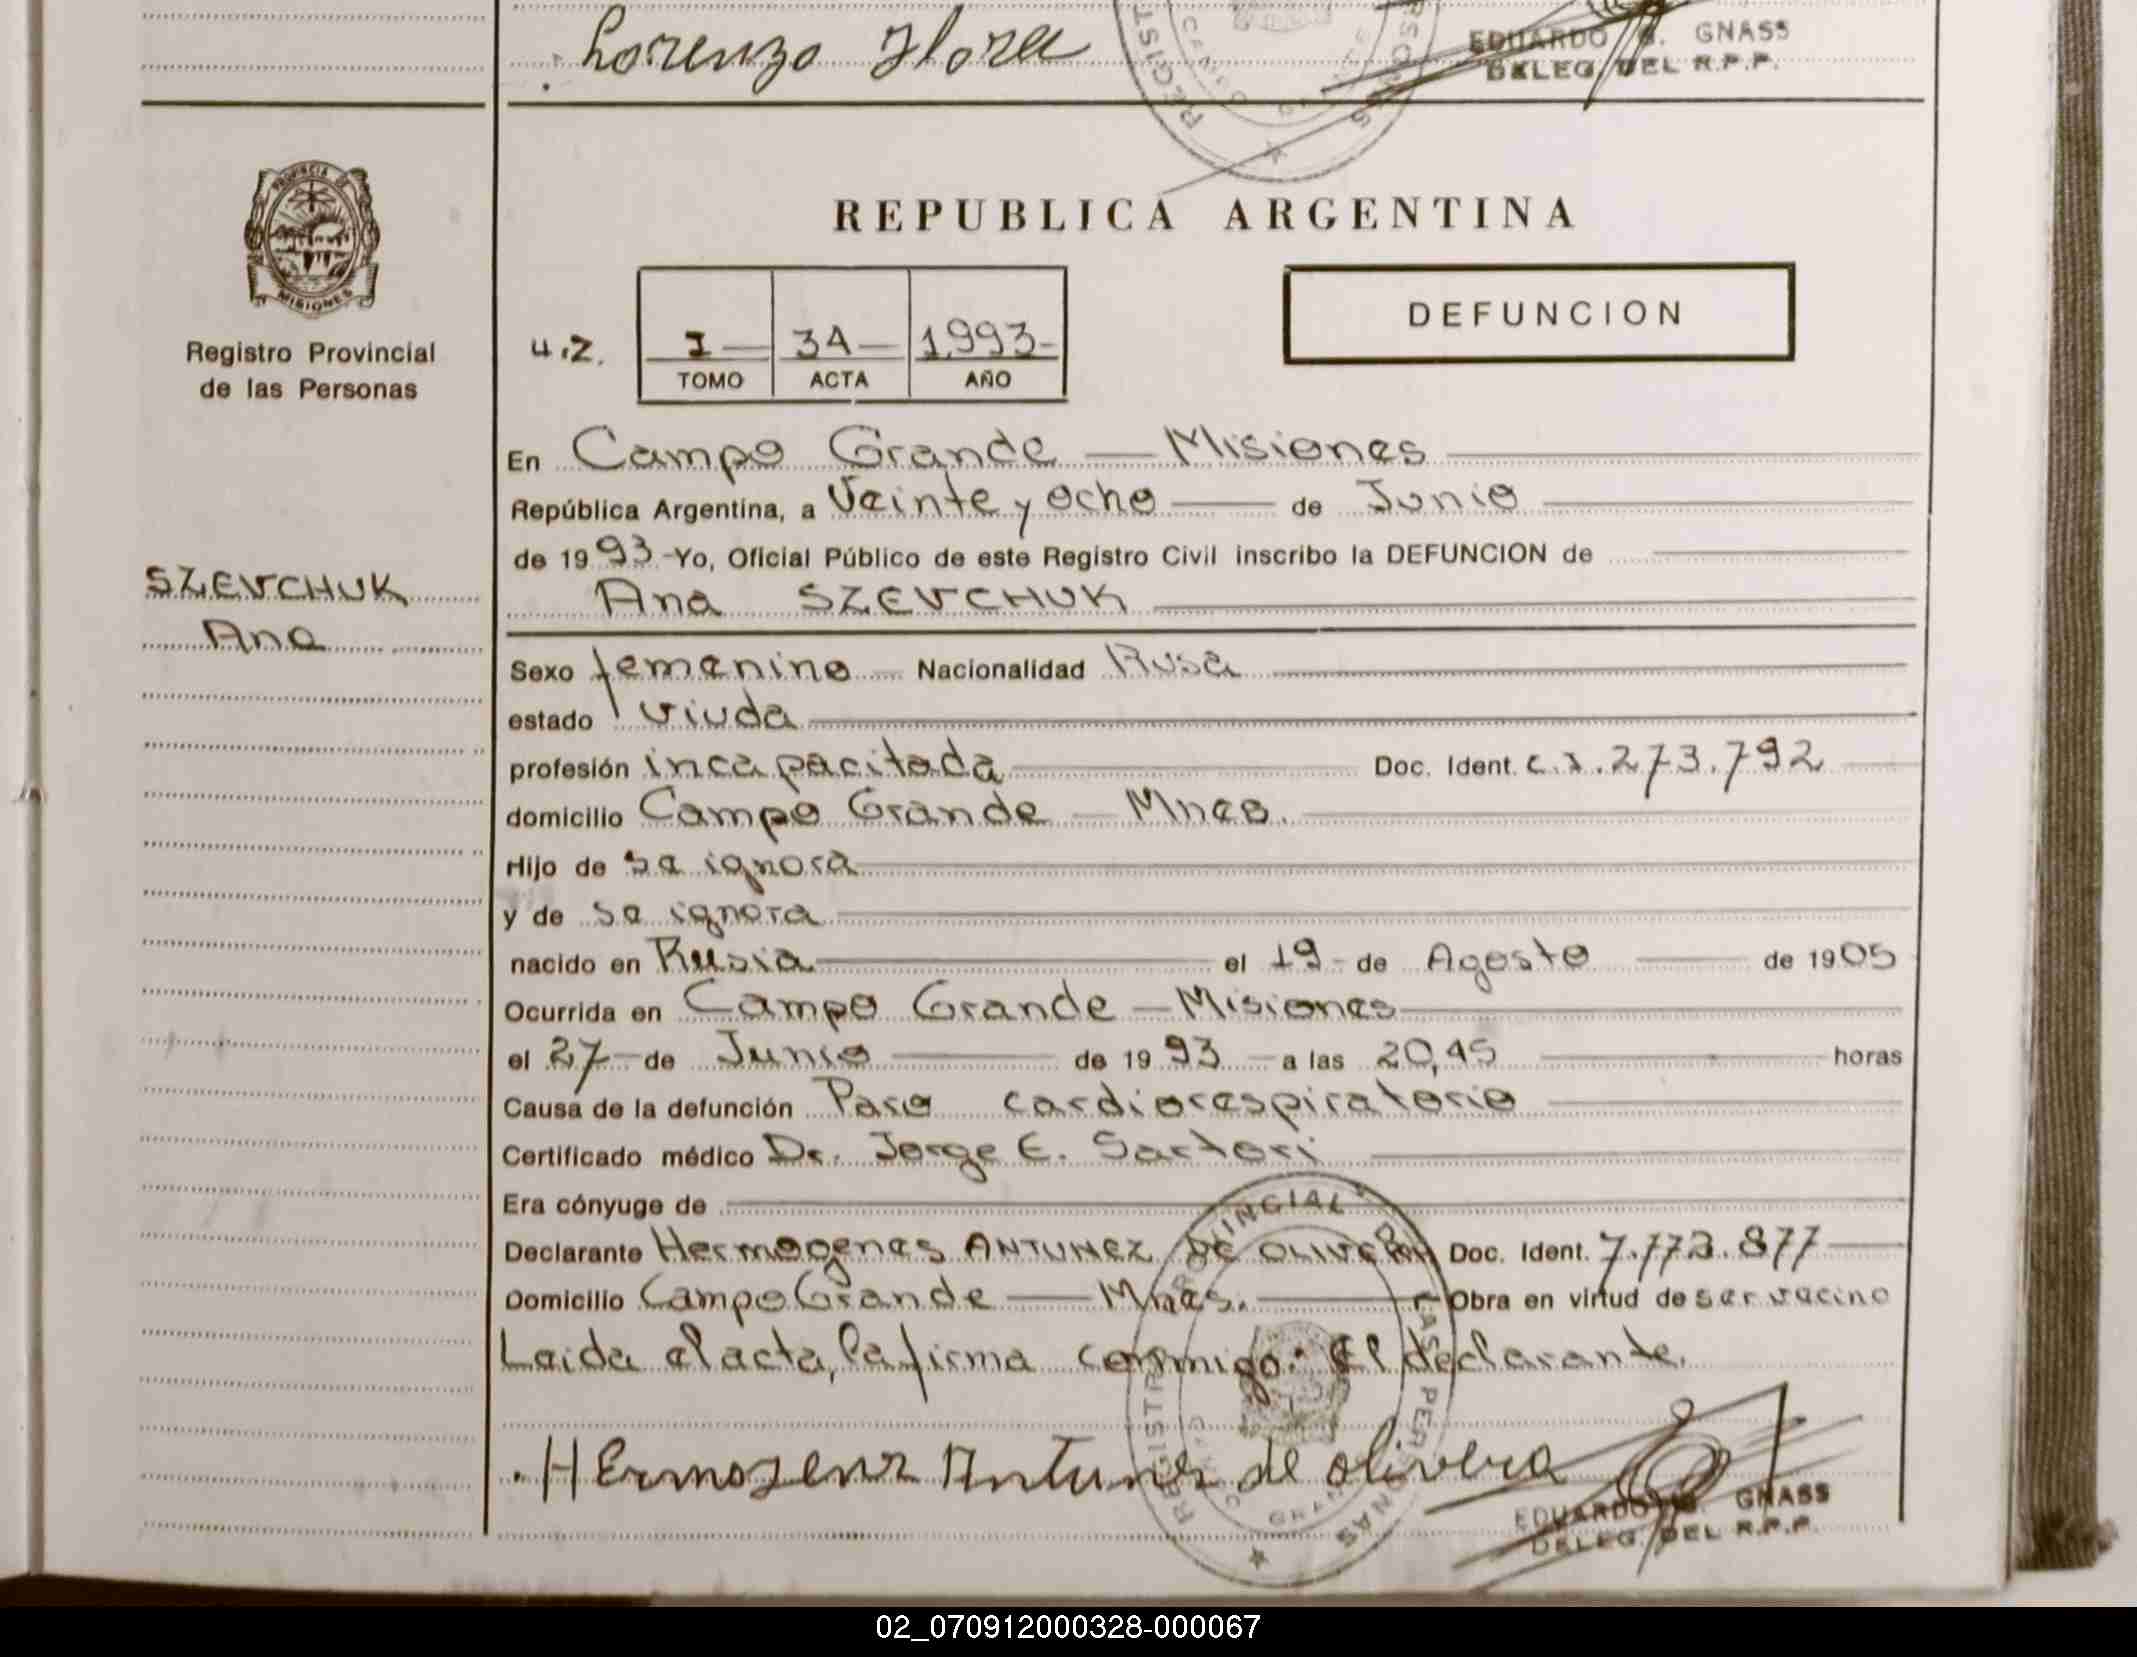 Lorenzo Flora
EDUARDO G. GNASS
DELEG. DEL R.P.P.
PROVINCIA DE
MISIONES
Registro Provincial
de las Personas
SZEVCHUK
Ana
REPUBLICA ARGENTINA
DEFUNCION
U.Z. I — 34 — 1.993-
TOMO ACTA AÑO
En Campo Grande — Misiones
República Argentina, a Veinte y ocho — de Junio
de 1993.-Yo, Oficial Público de este Registro Civil inscribo la DEFUNCION de
Ana SZEVCHUK
Sexo femenino Nacionalidad Rusa
estado viuda
profesión incapacitada Doc. Ident. C.I. 273.792
domicilio Campo Grande — Mnes.
Hijo de se ignora
y de se ignora
nacido en Rusia el 19 - de Agosto — de 1905
Ocurrida en Campo Grande — Misiones
el 27 - de Junio — de 1993 - a las 20,45 horas
Causa de la defunción Paro cardiorespiratorio
Certificado médico Dr. Jorge E. Sartori
Era cónyuge de
Declarante Hermogenes ANTUNEZ DE OLIVERA Doc. Ident. 7.773.877
Domicilio Campo Grande — Mnes. Obra en virtud de ser vecino
Leida el acta, la firma conmigo: El declarante.
Hermogenes Antunes de olivera
EDUARDO G. GNASS
DELEG. DEL R.P.P.
REGISTRO PROVINCIAL DE LAS PERSONAS
CAMPO GRANDE
02_070912000328-000067